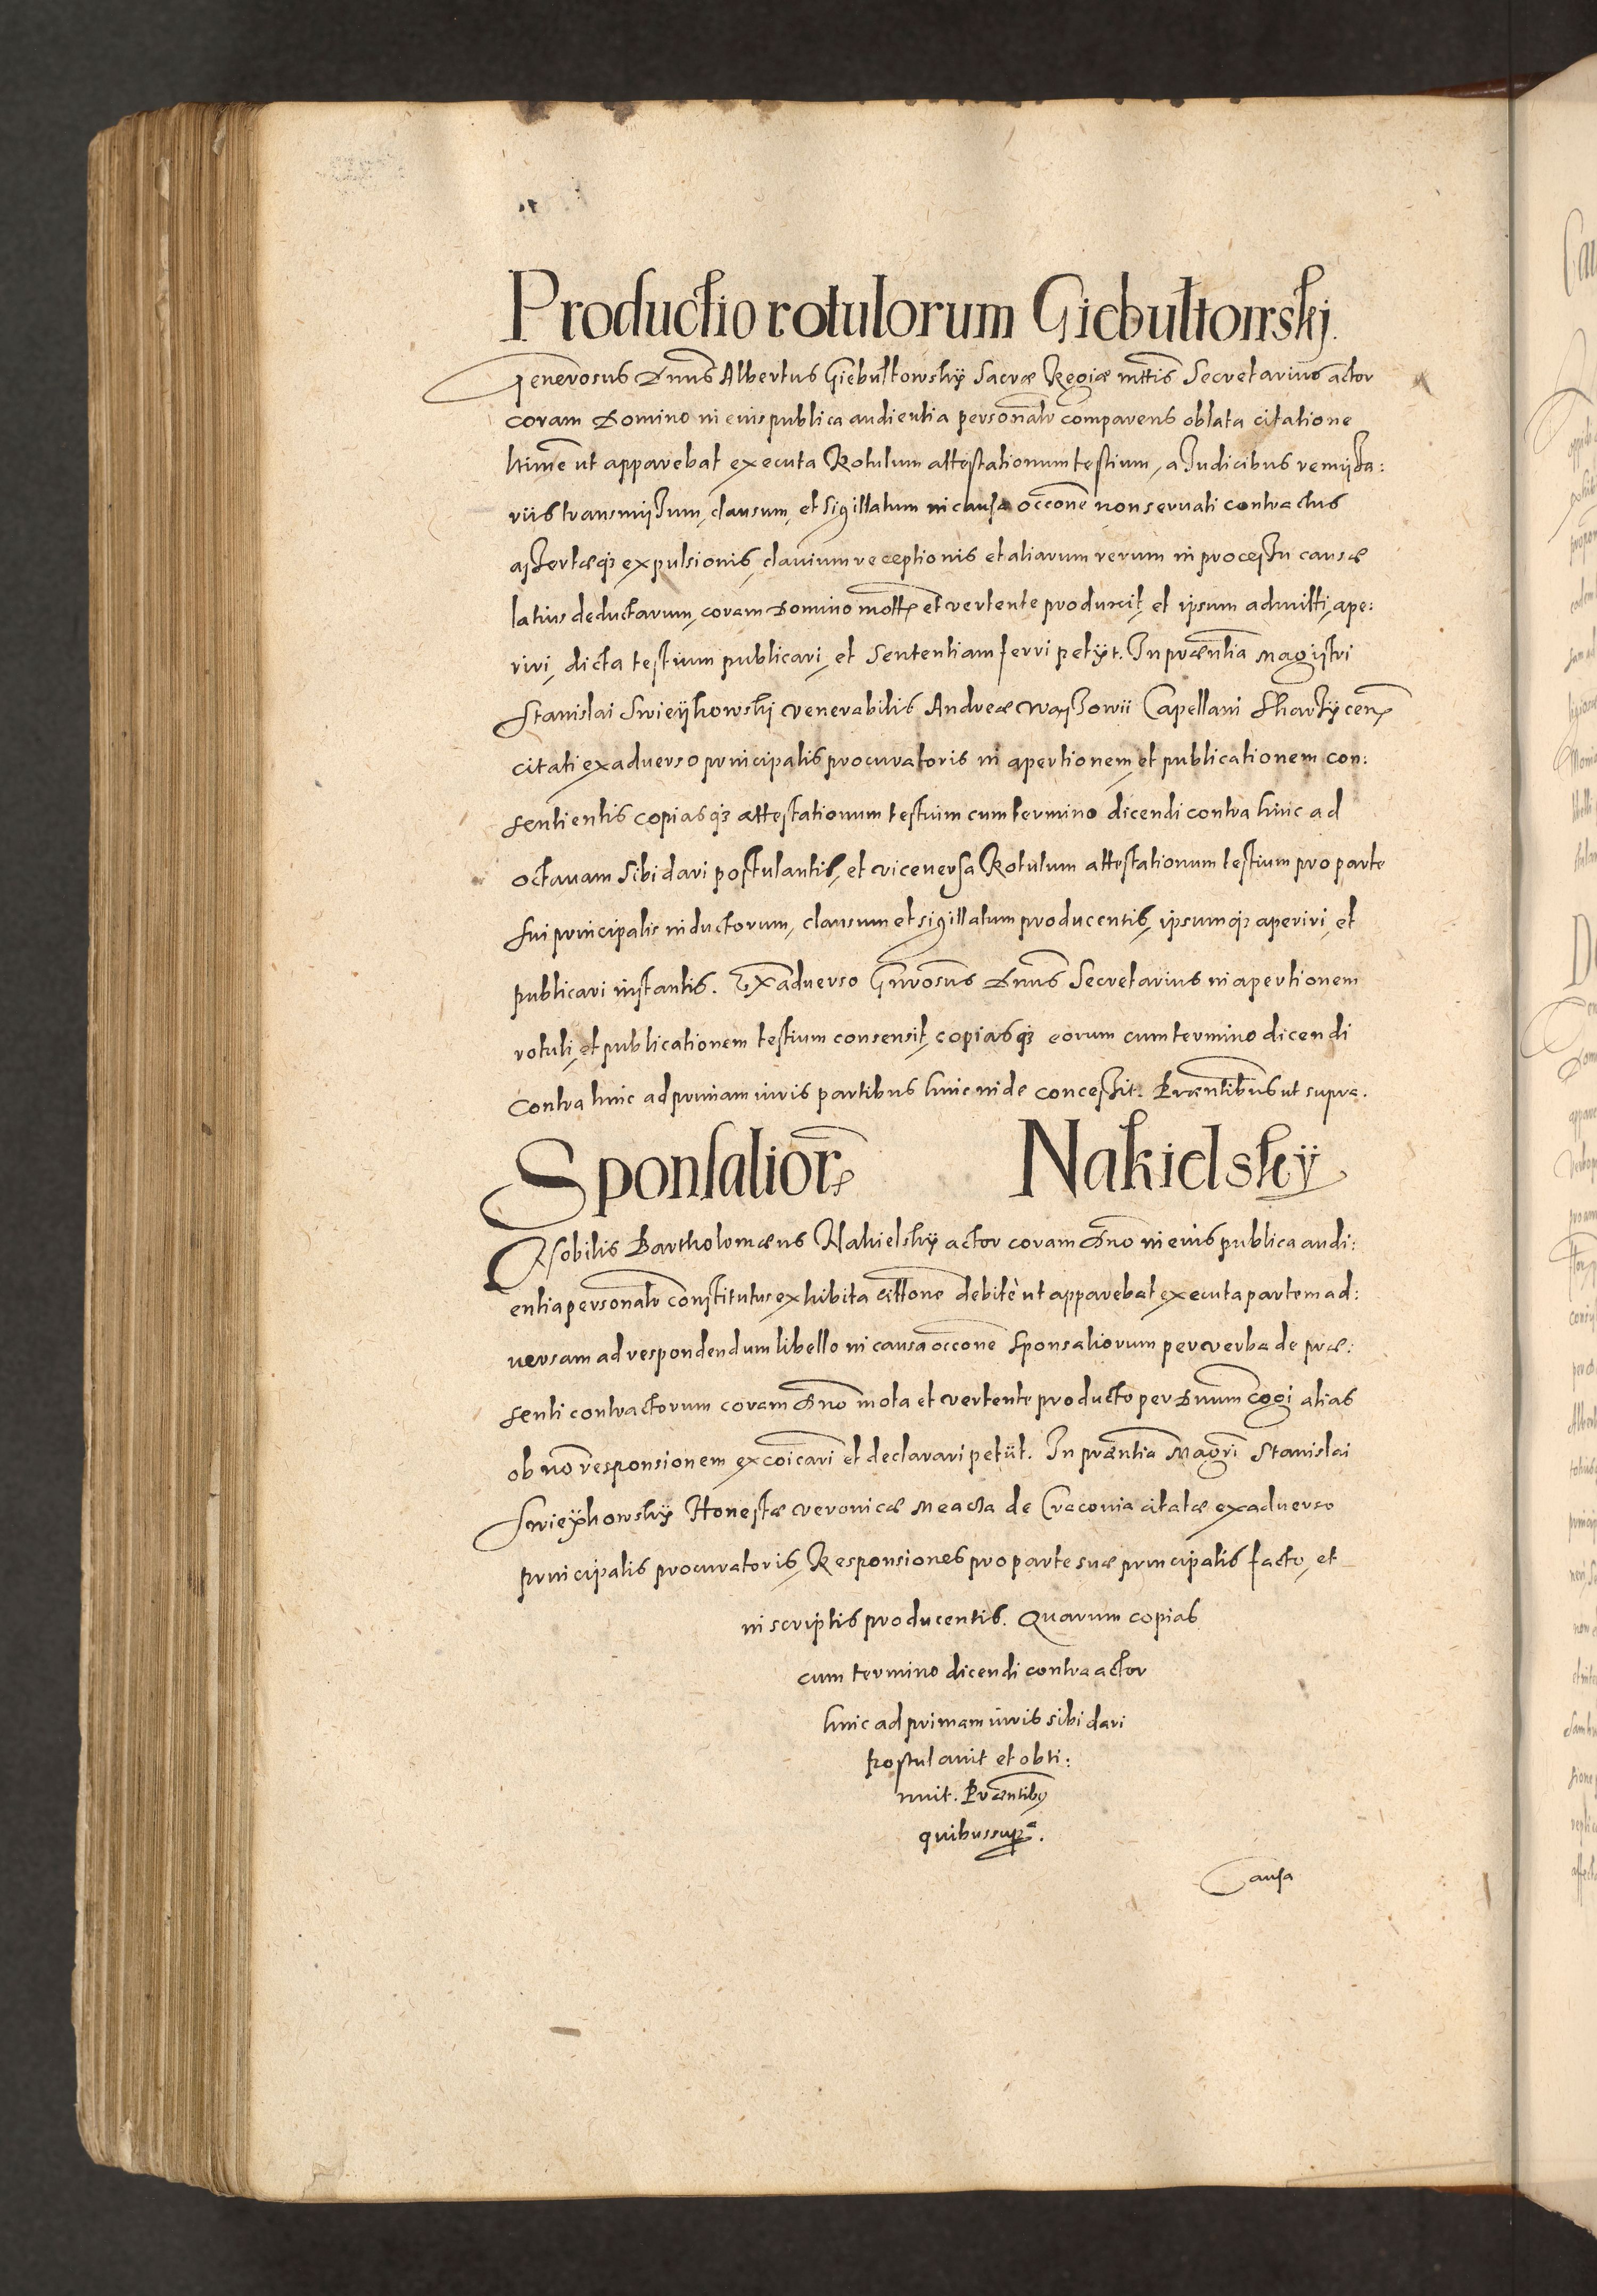 Productio rotulorum Giebułtowskj.
Generosus Dnus Albertus Giebułtowskÿ Sacræ Regiæ mttis Secretarius actor
coram Domino in eius publica audientia personalr comparens oblata citatione
ltime ut apparebat executa Rotulum attestationum testium, a Judicibus remissa:
riis transmissum, clausum, et sigillatum in causa occone non seruati contractus
assertæq3 expulsionis, clauium receptionis et aliarum rerum in processu causæ
latius deductarum, coram Domino motæ et vertente produxit, et ipsum admitti, ape:
riri, dicta testium publicari, et Sententiam ferri petijt. In præntia Magistri
Stanislai Swieÿkowskj venerabilis Andreæ Wassowii Capellani Skarsÿcen
citati ex aduerso principalis procuratoris in apertionem, et publicationem con:
sentientis copiasq3 attestationum testium cum termino dicendi contra hinc ad
octauam sibi dari postulantis, et viceuersa Rotulum attestationum testium pro parte
sui principalis inductorum, clausum et sigillatum producentis, ipsumq3 aperiri, et
publicari instantis. Ex aduerso Gnrosus Dnus Secretarius in apertionem
rotuli, et publicationem testium consensit, copiasq3 eorum cum termino dicendi
contra hinc ad primam iuris partibus hinc inde concessit. Præntibus ut supra.
Sponsalior Nakielskÿ
Nobilis Bartholomæus Nakielskÿ actor coram Dno in eius publica audi:
entia personalr constitutus exhibita cittone debitè ut apparebat executa partem ad:
uersam ad respondendum libello in causa occone Sponsaliorum per verba de præ:
senti contractorum coram Dno mota et vertente producto per Dnum cogi alias
ob no responsionem excoicari et declarari petiit. In præntia Magri Stanislai
Swieÿkowskÿ Honestæ Veronicæ de Cracouia citatæ ex aduerso
principalis procuratoris, Responsiones pro parte suæ principalis facto, et
in scriptis producentis. Quarum copias
cum termino dicendi contra actor
hinc ad primam iuris sibi dari
postulauit et obti:
nuit. Præntibus
quibus supra.
Causa